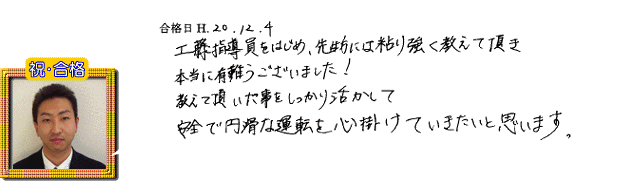 祝・合格
合格日 H.20.12.4
工藤指導員をはじめ、先生方には粘り強く教えて頂き
本当に有難うございました!
教えて頂いた事をしっかり活かして
安全で円滑な運転を心掛けていきたいと思います。